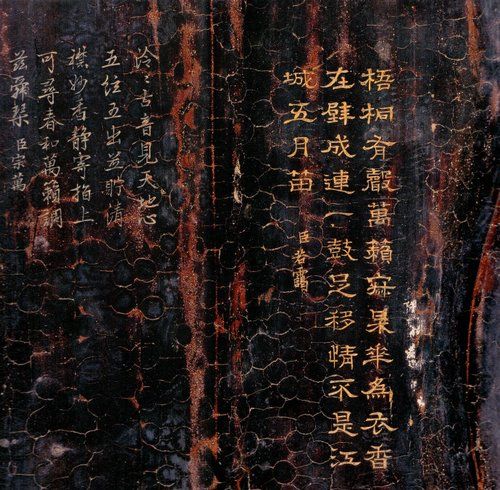 梧桐有聲萬籟寂華為衣香
在壁成連一鼓足移情不是江
城五月笛
臣若靄
泠〻古音見天地心
五位五出並貯清
襟妙香静寄指上
可尋春和萬籟調
茲舜琹 臣宗萬